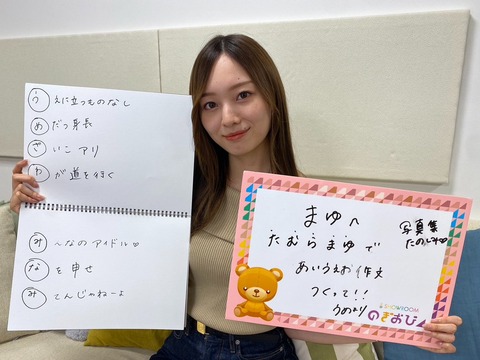 う えに立つものなし
め だつ身長
ざ いこアリ
わ が道を行く
み ～なのアイドル♡
な を申せ
み てんじゃねーよ
まゆへ
写真集
たのしみ♡
たむらまゆで
あいうえお作文
つくって!!
うめより
SHOWROOM
のぎおび